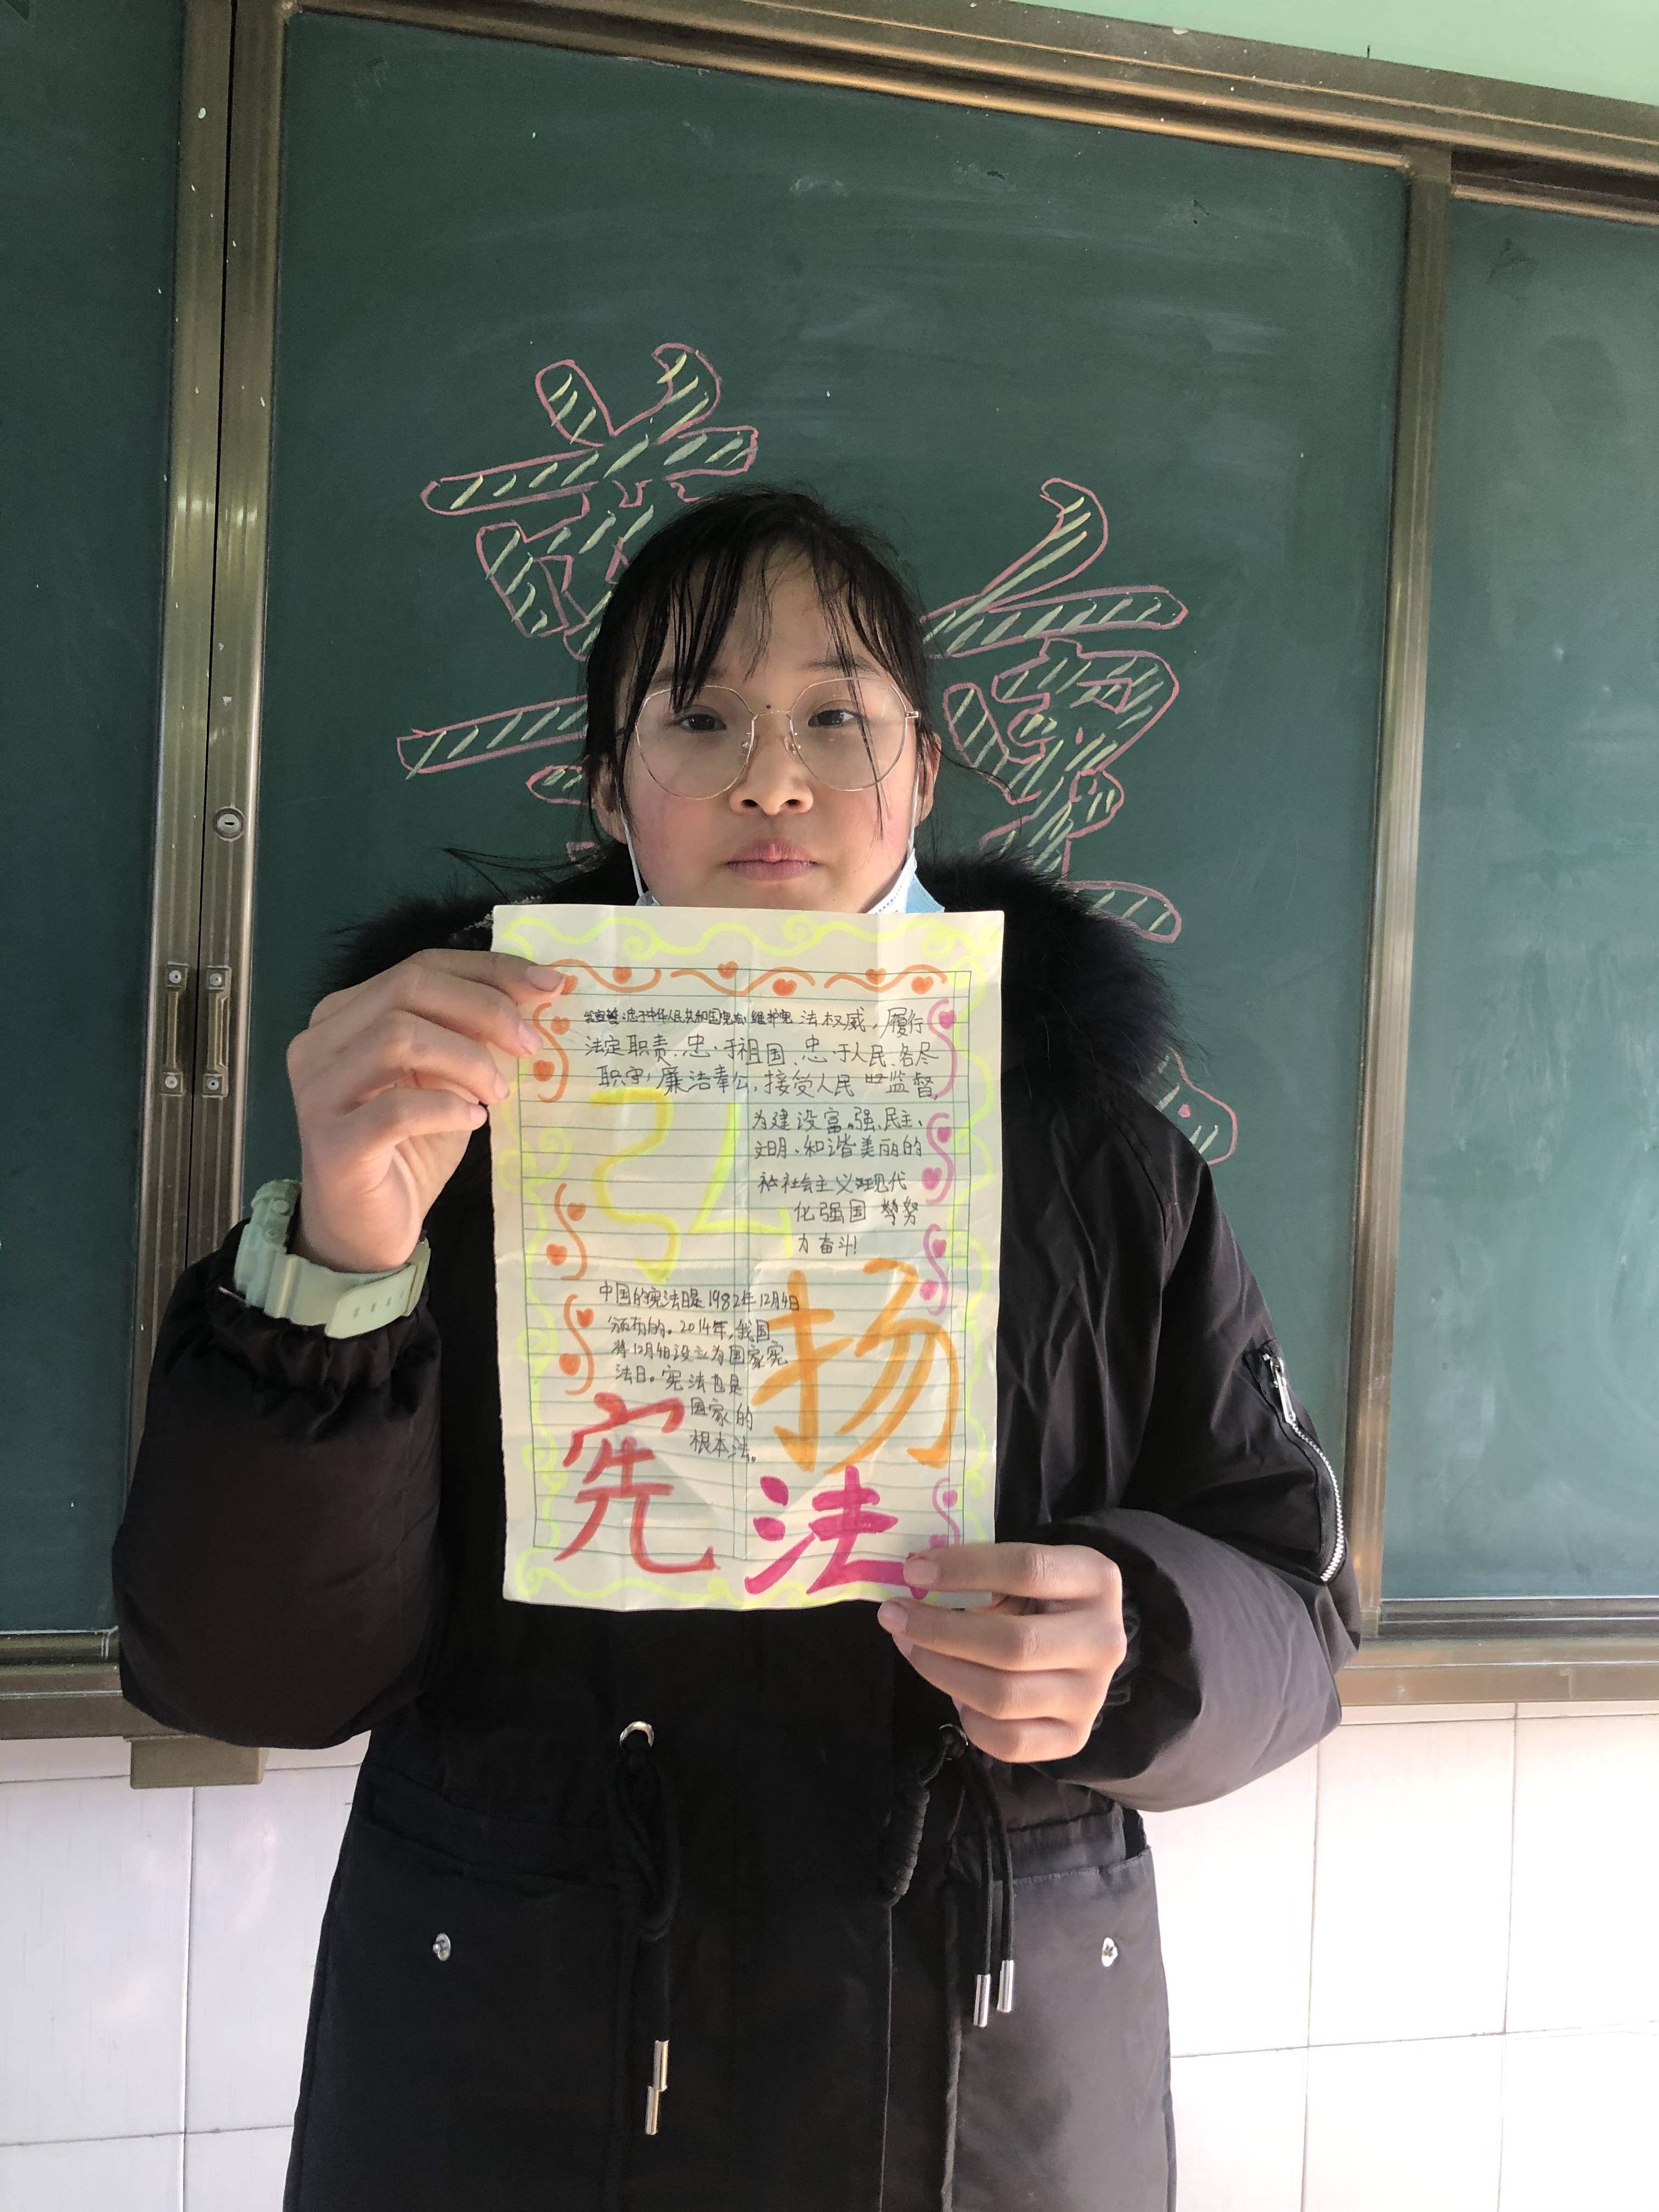 法权威，履行
法定职责、忠于祖国、忠于人民、恪尽
职守，廉洁奉公，接受人民监督，
为建设富强、民主、
文明、和谐美丽的
社会主义现代
化强国努
力奋斗！
弘
中国的宪法日是1982年12月4日
颁布的。2014年，我国
将12月4日设立为国家宪
法日。宪法也是
国家的
根本法。
扬
宪
法